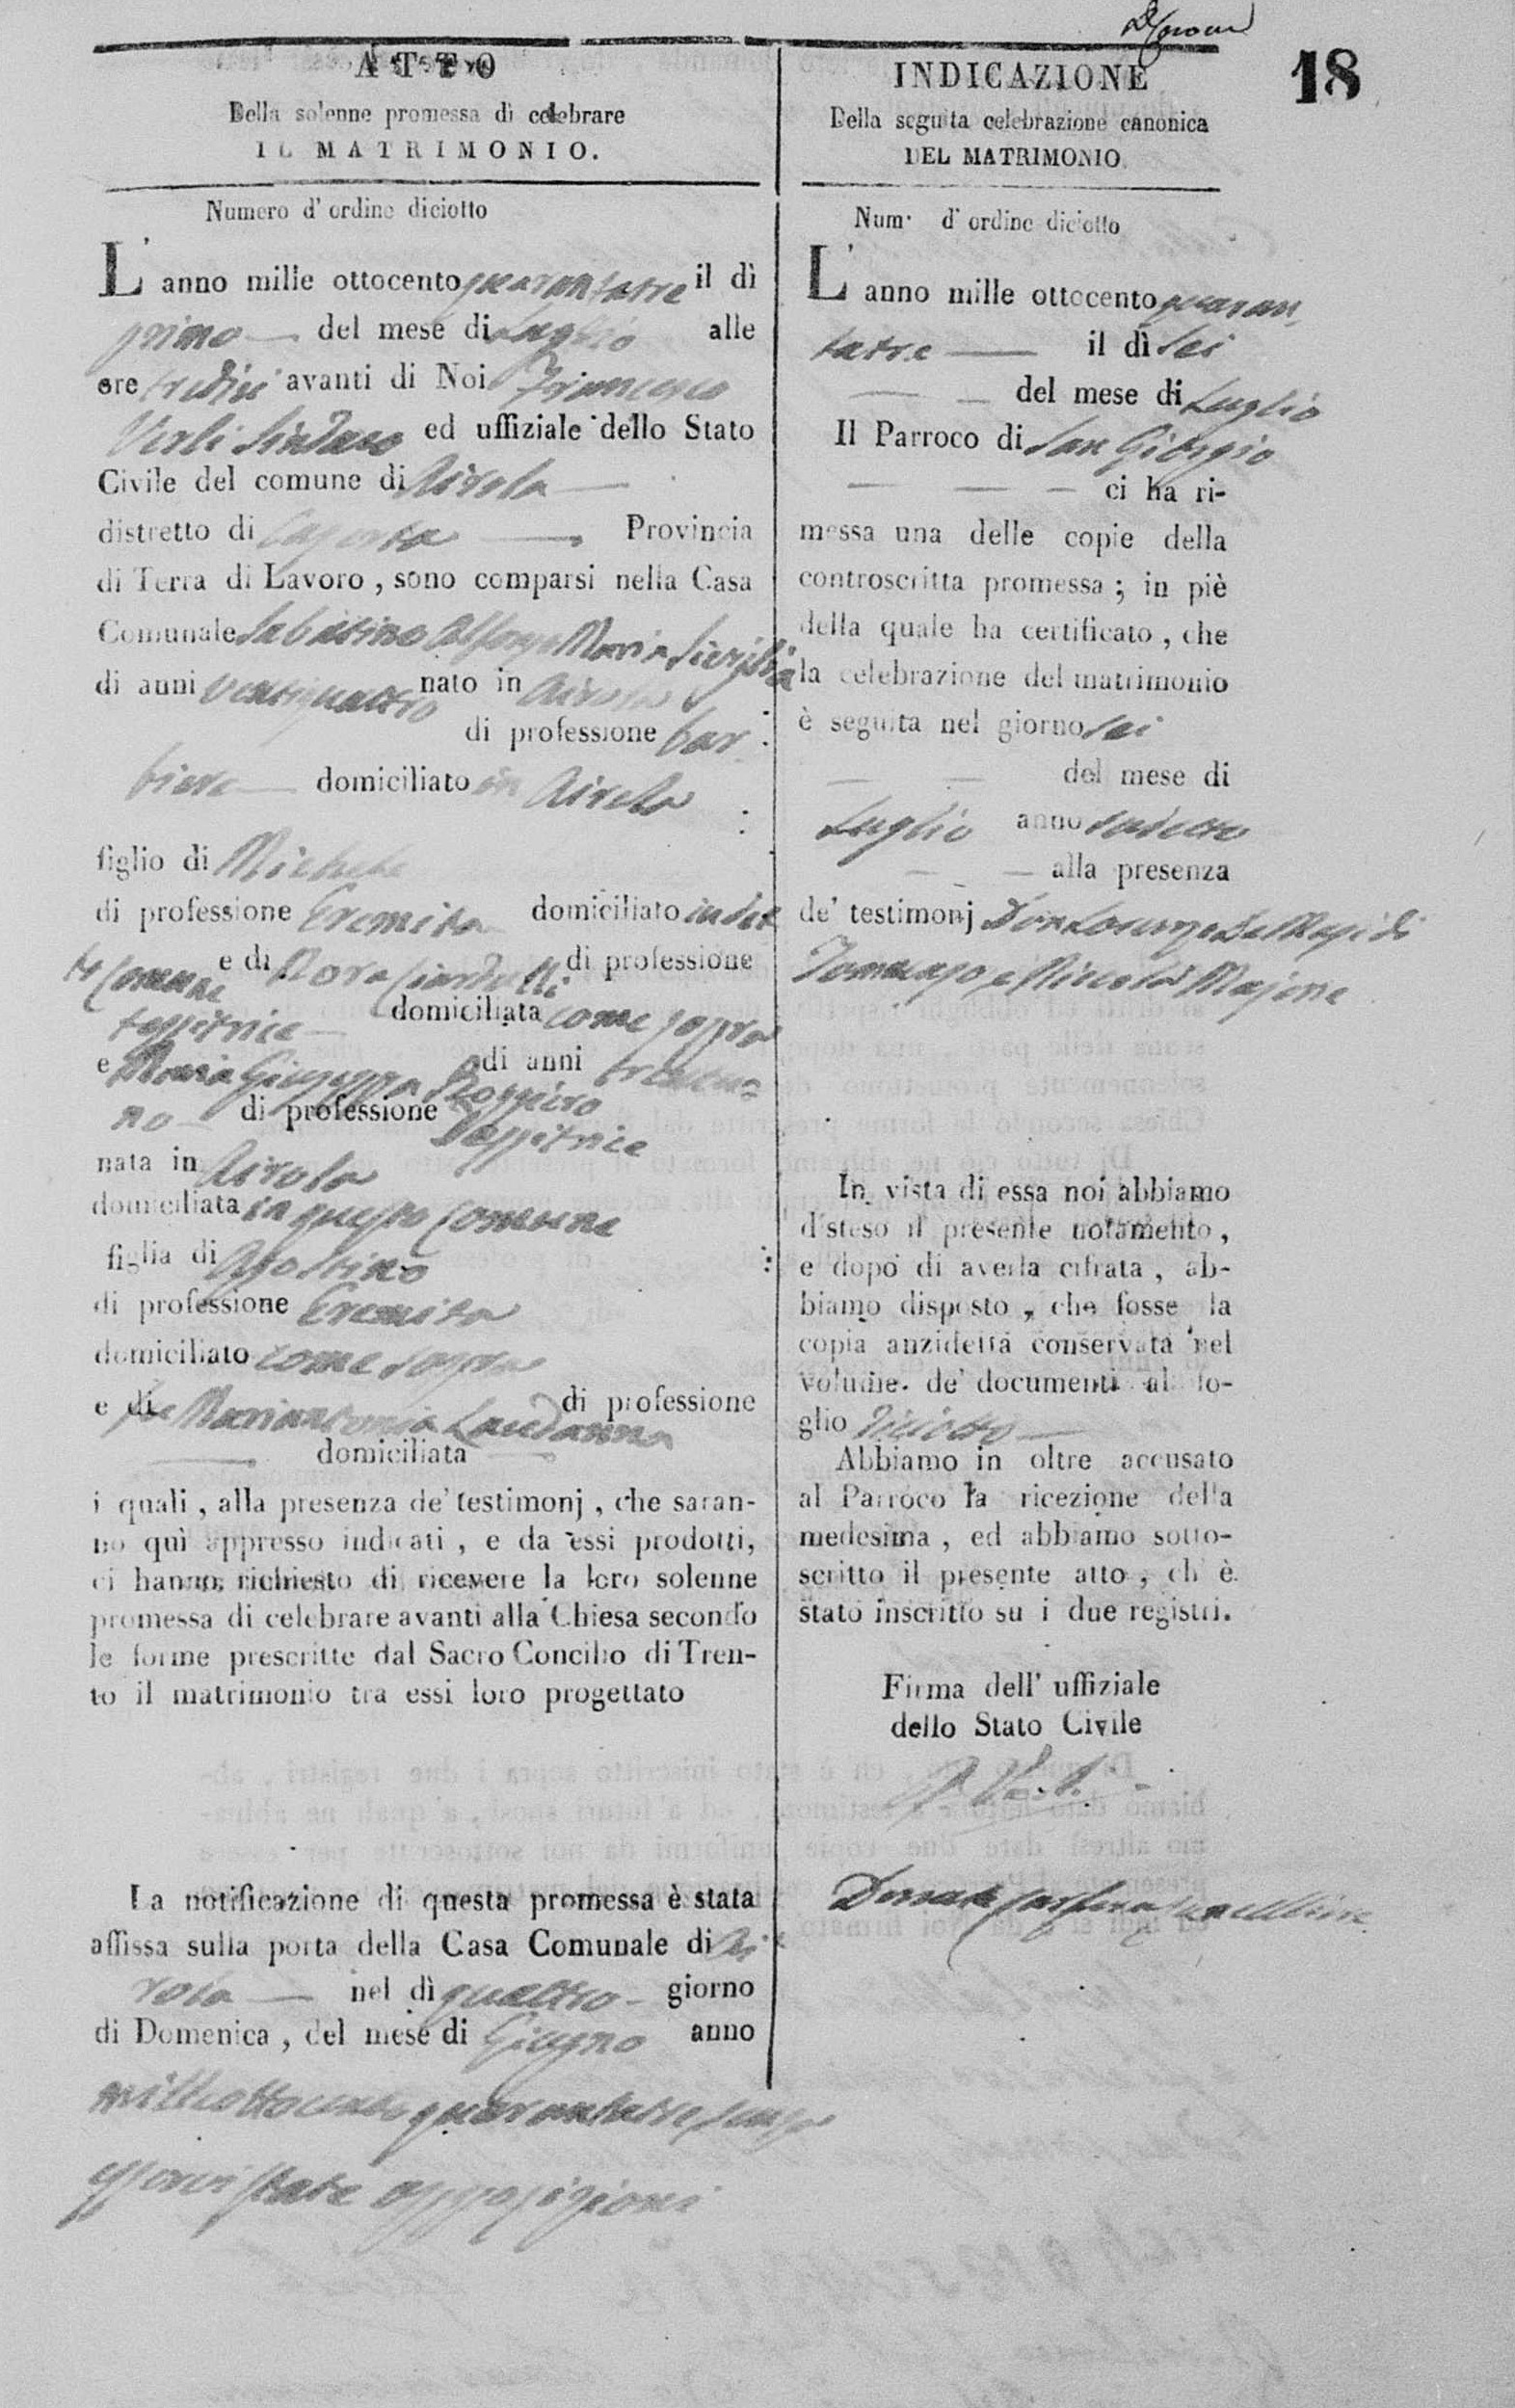 18
ATTO
Della solenne promessa di celebrare
IL MATRIMONIO.
Numero d' ordine diciotto
L' anno mille ottocento quarantatre il dì
primo — del mese di Luglio alle
ore tredici avanti di Noi Francesco
Verli Sindaco ed uffiziale dello Stato
Civile del comune di Airola —
distretto di Caserta — Provincia
di Terra di Lavoro, sono comparsi nella Casa
Comunale Sabatino Alfonso Maria
di anni ventiquattro nato in Airola
di professione bar
biere — domiciliato in Airola
figlio di Michele
di professione Eremita domiciliato in det
to Comune e di Dora Ciardulli di professione
tessitrice — domiciliata come sopra
e Maria Giuseppa Ruggiero di anni trentu=
no — di professione Tessitrice
nata in Airola
domiciliata in questo Comune
figlia di Agostino
di professione Eremita
domiciliato come sopra
e di fu Mariantonia Laudanna di professione
— domiciliata —
i quali, alla presenza de' testimonj, che saran-
no quì appresso indicati, e da essi prodotti,
ci hanno richiesto di ricevere la loro solenne
promessa di celebrare avanti alla Chiesa secondo
le forme prescritte dal Sacro Concilio di Tren-
to il matrimonio tra essi loro progettato
La notificazione di questa promessa è stata
affissa sulla porta della Casa Comunale di Ai
rola — nel dì quattro — giorno
di Domenica, del mese di Giugno anno
milleottocento quarantatre senza
esservi state opposizioni
INDICAZIONE
Della seguita celebrazione canonica
DEL MATRIMONIO.
Num. d' ordine diciotto
L' anno mille ottocento quaran
tatre — il dì sei
— — del mese di Luglio
Il Parroco di San Giorgio
— — — ci ha ri-
messa una delle copie della
controscritta promessa; in piè
della quale ha certificato, che
la celebrazione del matrimonio
è seguita nel giorno sei
— — del mese di
Luglio anno sudetto
— — alla presenza
de' testimonj Don Lorenzo
Tommaso e Niccola Majone
In vista di essa noi abbiamo
disteso il presente notamento,
e dopo di averla cifrata, ab-
biamo disposto, che fosse la
copia anzidetta conservata nel
volume de' documenti al fo-
glio diciotto —
Abbiamo in oltre accusato
al Parroco la ricezione della
medesima, ed abbiamo sotto-
scritto il presente atto, ch' è
stato inscritto su i due registri.
Firma dell' uffiziale
dello Stato Civile